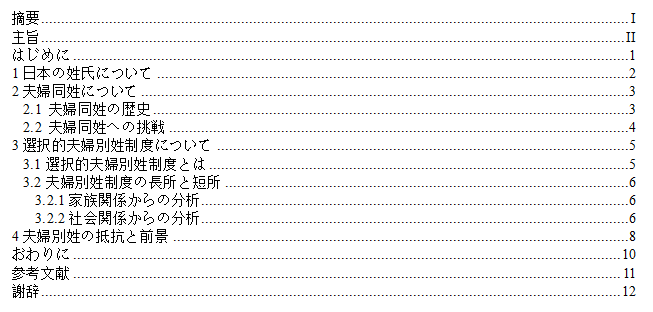 摘要 I
主旨 II
はじめに 1
1 日本の姓氏について 2
2 夫婦同姓について 3
2.1 夫婦同姓の歴史 3
2.2 夫婦同姓への挑戦 4
3 選択的夫婦別姓制度について 5
3.1 選択的夫婦別姓制度とは 5
3.2 夫婦別姓制度の長所と短所 6
3.2.1 家族関係からの分析 6
3.2.2 社会関係からの分析 6
4 夫婦別姓の抵抗と前景 8
おわりに 10
参考文献 11
謝辞 12